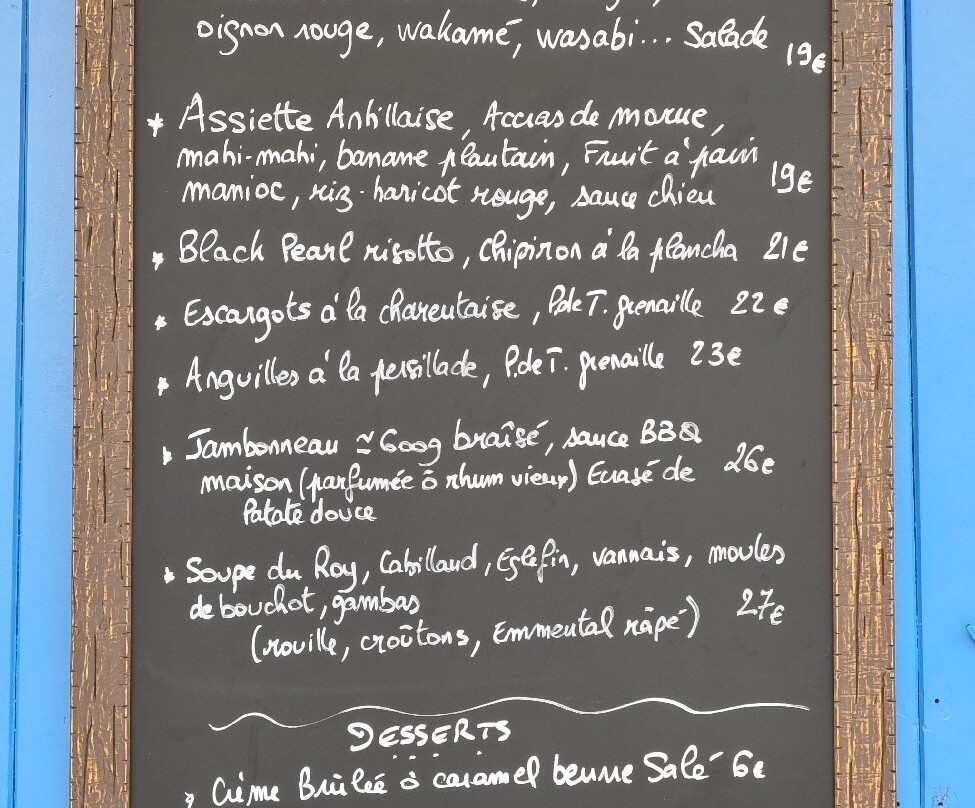 oignon rouge, wakamé, wasabi... Salade 19€
* Assiette Antillaise, Accras de morue,
mahi-mahi, banane plantain, Fruit à pain
manioc, riz-haricot rouge, sauce chien 19€
* Black Pearl risotto, chipiron à la plancha 21€
* Escargots à la charentaise, P.de T. grenaille 22€
* Anguilles à la persillade, P.de T. grenaille 23€
* Jambonneau ≃ 600g braîsé, sauce BBQ
maison (parfumée ô rhum vieux) Ecrasé de 26€
Patate douce
* Soupe du Roy, Cabillaud, Eglefin, vannais, moules
de bouchot, gambas 27€
(rouille, croûtons, Emmental râpé)
DESSERTS
* Crème Brûlée ô caramel beurre Salé 6€